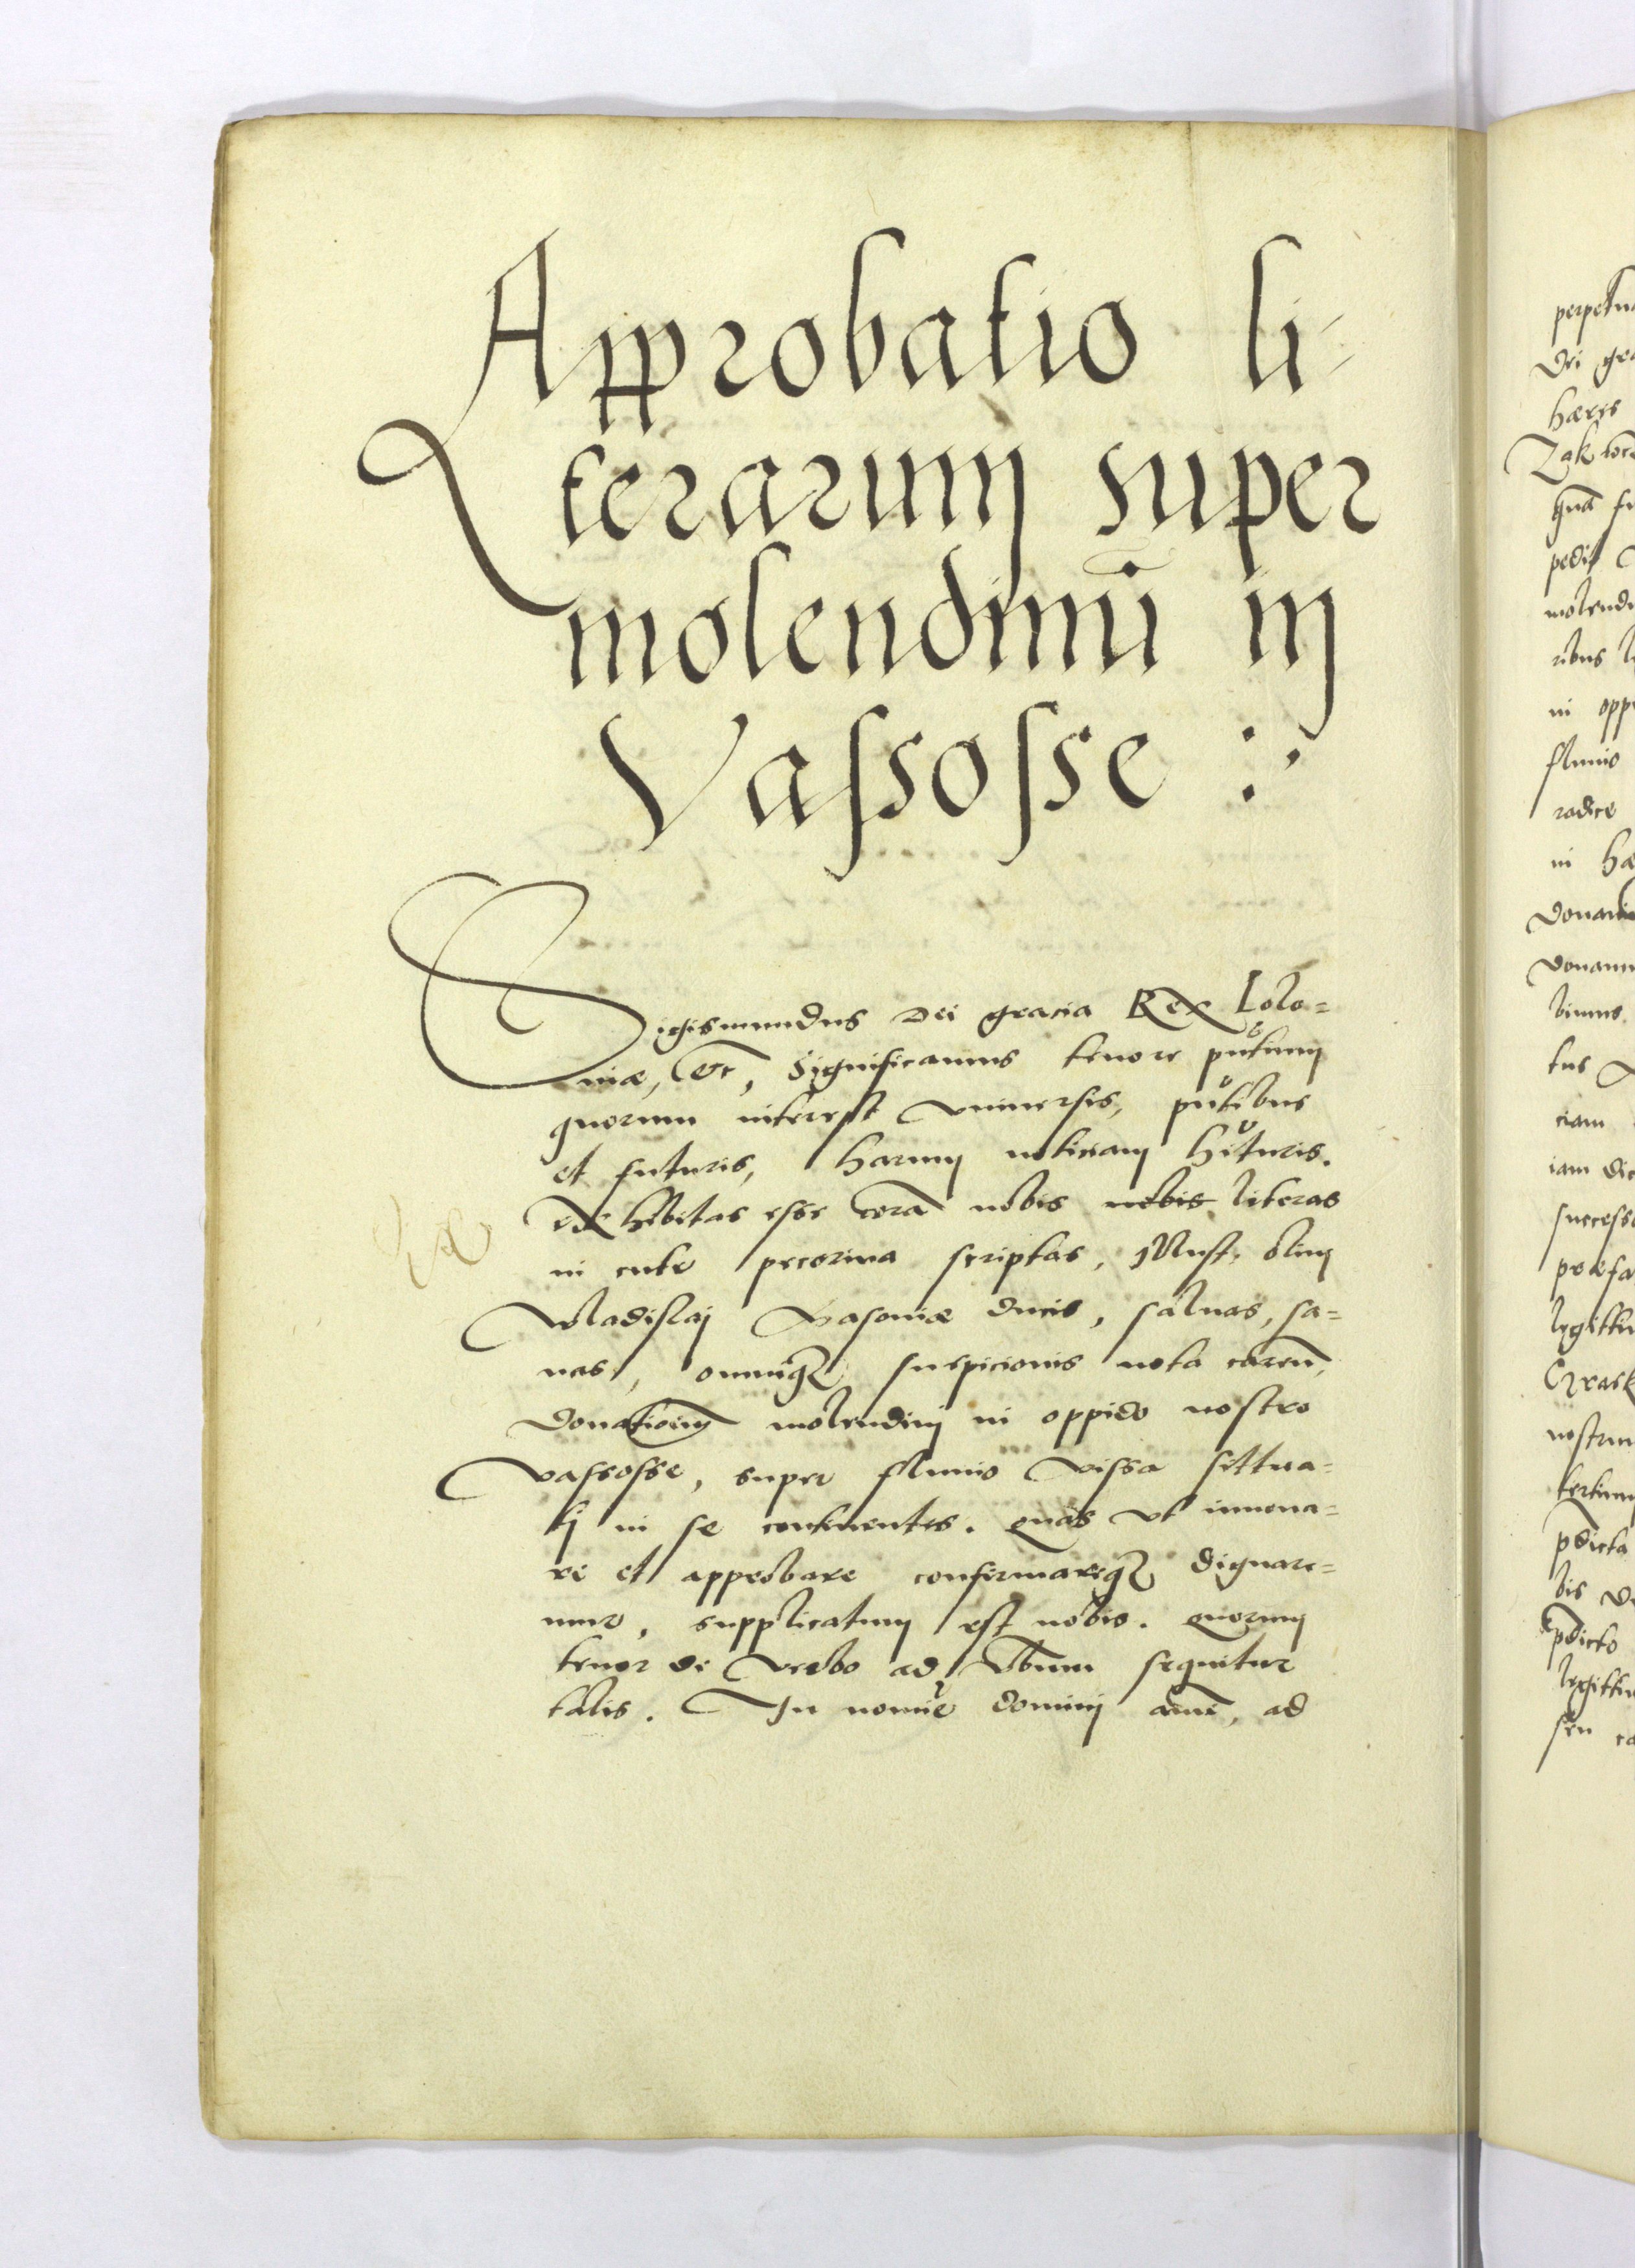 Approbatio li-
terarum super
molendinū in
Vassosse :
Sigismundus Dei gracia Rex Polo=
niæ, etc, Significamus tenore pn̄tium
quorum interest vniuersis, pn̄tibus
et futuris, harum noticiam hīturis.
Exhibitas esse corā nobis nobis literas
in cute pecorina scriptas, Illust. olim
Wladislai Masoviæ ducis, saluas, sa=
nas, omniq3 suspicionis nota caren̄,
donationem molendini in oppido nostro
Vassosse, super fluuio Vissa sittua=
ti in se continentes. Quas vt innoua=
re et approbare confirmareq3 dignare=
mur, supplicatum est nobis. Quorum
tenor de verbo ad vbum sequitur
talis. In nomīe domini amē, ad
perpetua
Dei gra
hæres
Zak
qua
pedit
molendi
ribus
in opp
fluuio
radice
in
donaui
donamu
tus
ciam
iam dic
success
præfa
legittu
nostru
pdicta
bis
pdicto
legittu
seu